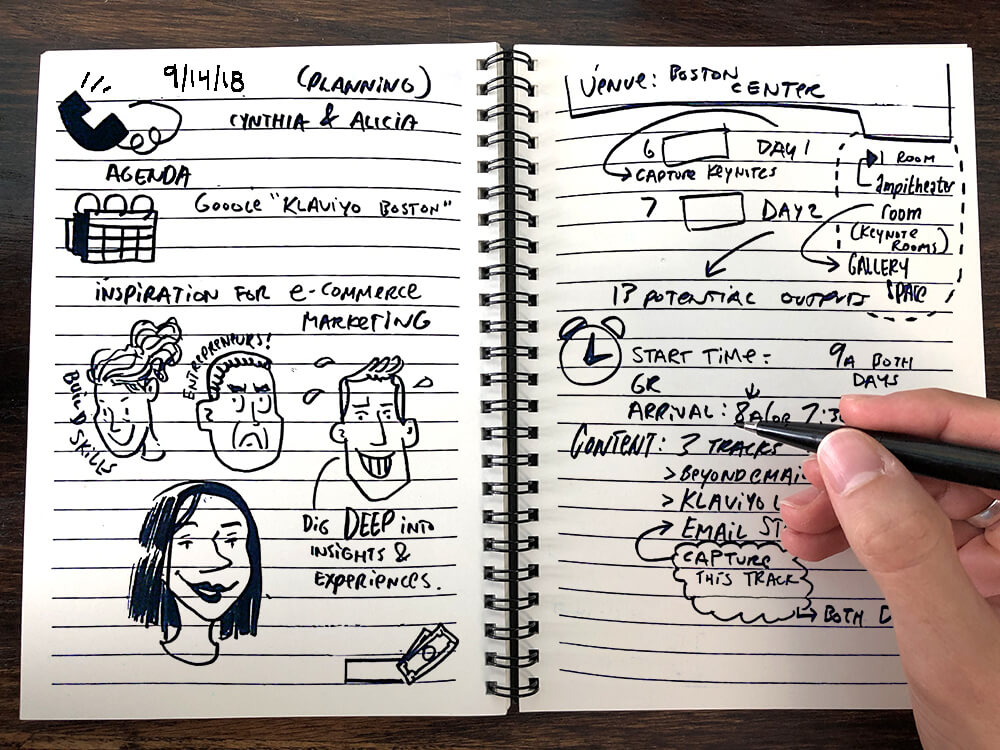 9/14/18 (PLANNING)
CYNTHIA & ALICIA
AGENDA
GOOGLE "KLAVIYO BOSTON"
INSPIRATION FOR e-COMMERCE
MARKETING
BUILD SKILLS
ENTREPRENEURS!
DIG DEEP INTO
INSIGHTS &
EXPERIENCES.
VENUE: BOSTON
CENTER
6 DAY 1
CAPTURE KEYNITES
7 DAY 2
13 POTENTIAL OUTPUTS
1 ROOM
Ampitheater
room
(KEYNOTE
ROOMS)
GALLERY
SPACE
START TIME: 9A BOTH
DAYS
GR
ARRIVAL: 8A/OR 7:3
CONTENT: 3 TRACKS
> BEYOND EMAI
> KLAVIYO
EMAIL ST
CAPTURE
THIS TRACK
BOTH D